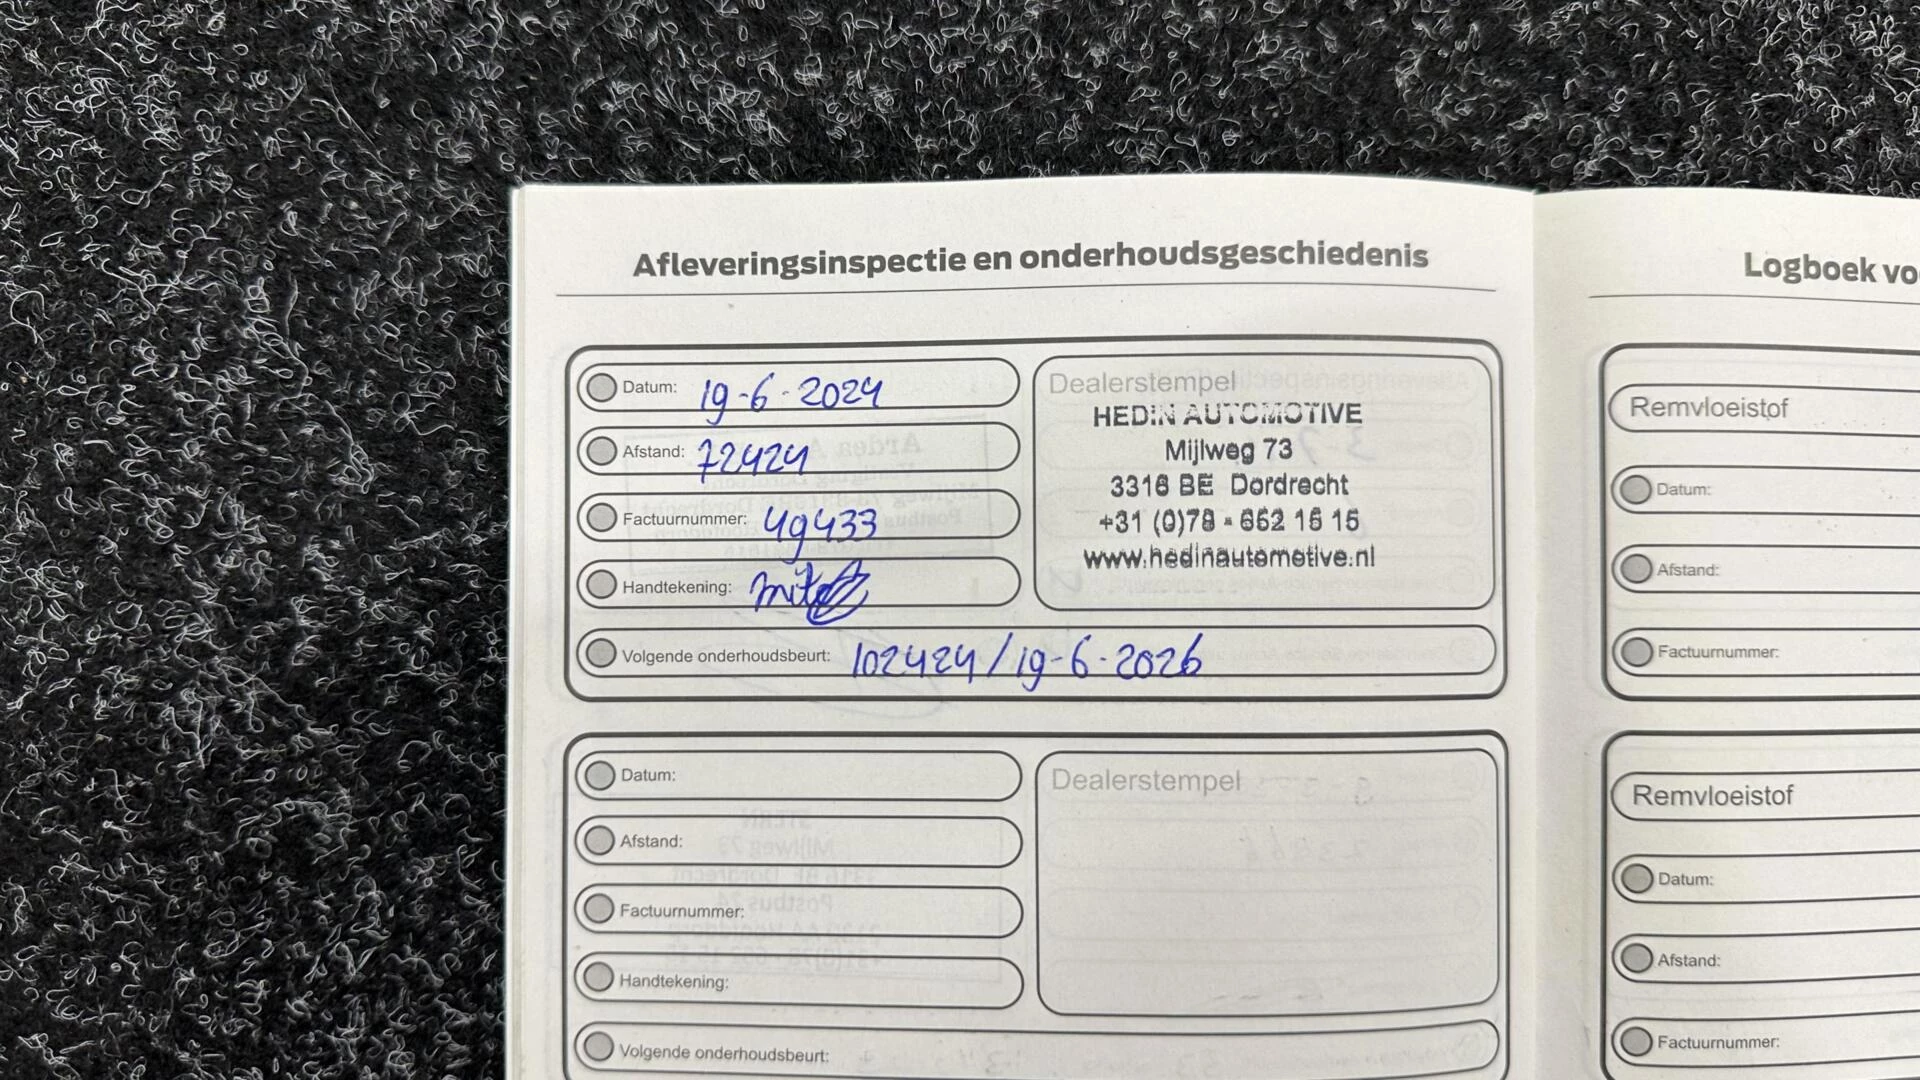 Afleveringsinspectie en onderhoudsgeschiedenis
Datum: 19-6-2024
Afstand: 72424
Factuurnummer: 49433
Handtekening:
Volgende onderhoudsbeurt: 102424/19-6-2026
Dealerstempel
HEDIN AUTOMOTIVE
Mijlweg 73
3316 BE Dordrecht
+31 (0)78 - 652 15 15
www.hedinautomotive.nl
Datum:
Afstand:
Factuurnummer:
Handtekening:
Volgende onderhoudsbeurt:
Dealerstempel
Logboek vo
Remvloeistof
Datum:
Afstand:
Factuurnummer:
Remvloeistof
Datum:
Afstand:
Factuurnummer: